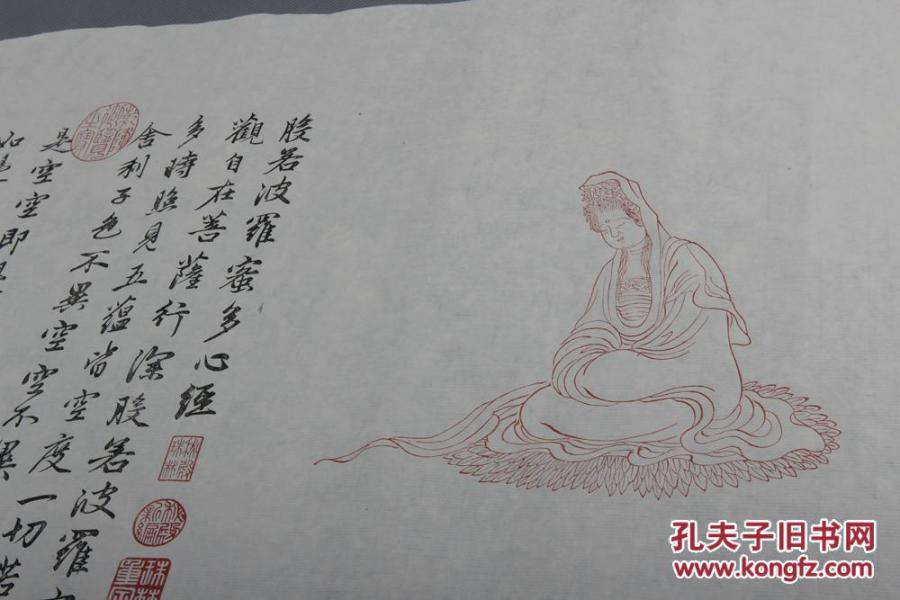 般若波羅蜜多心經
觀自在菩薩行深般若波羅
多時照見五蘊皆空度一切苦
舍利子色不異空空不異
是空空即是
秘殿珠林
秘殿新編
珠林重
孔夫子旧书网
www.kongfz.com